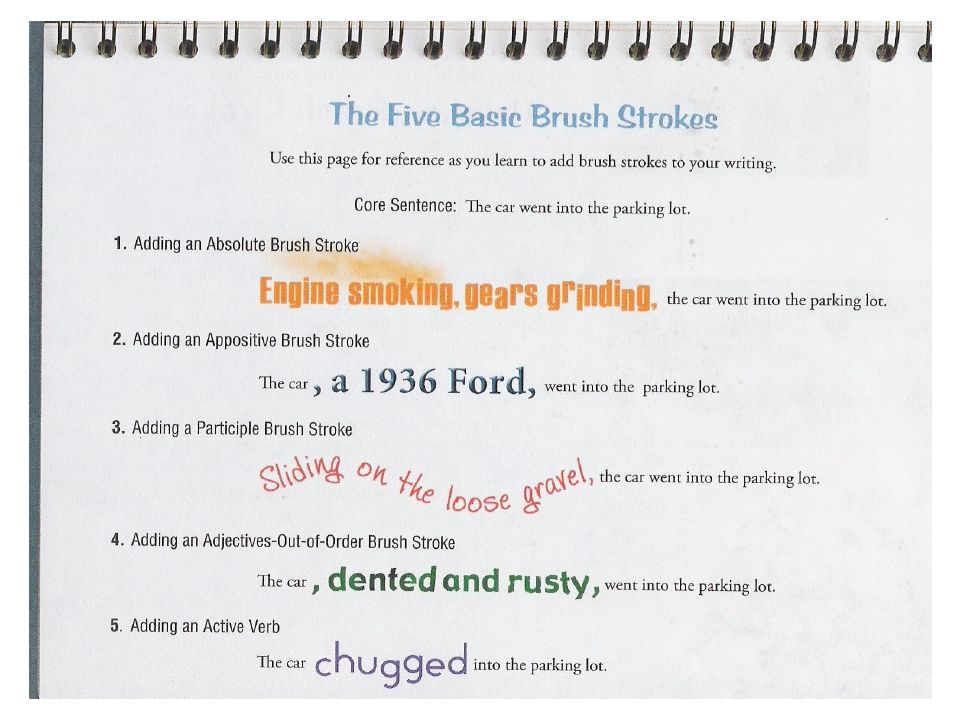 The Five Basic Brush Strokes
Use this page for reference as you learn to add brush strokes to your writing.
Core Sentence: The car went into the parking lot.
1. Adding an Absolute Brush Stroke
Engine smoking, gears grinding, the car went into the parking lot.
2. Adding an Appositive Brush Stroke
The car, a 1936 Ford, went into the parking lot.
3. Adding a Participle Brush Stroke
Sliding on the loose gravel, the car went into the parking lot.
4. Adding an Adjectives-Out-of-Order Brush Stroke
The car, dented and rusty, went into the parking lot.
5. Adding an Active Verb
The car chugged into the parking lot.